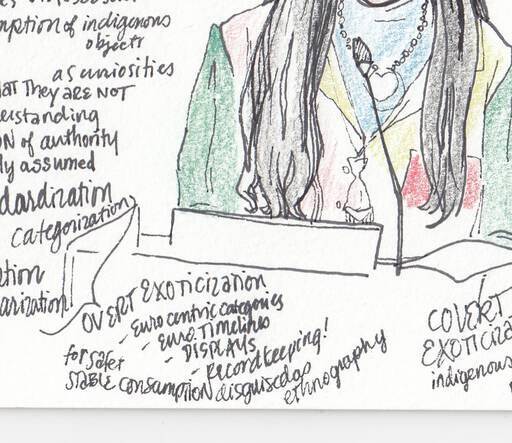 mption of indigenous
objects
as curiosities
AT THEY ARE NOT
derstanding
ON of authority
ly assumed
dardization
categorization
ation
arization
OVERT EXOTICIZATION
- Euro centric categories
- Euro. Timelines
- DISPLAYS
- Recordkeeping!
for safer
STABLE consumption disguised as
ethnography
COVERT
EXOTICIZA
indigenous